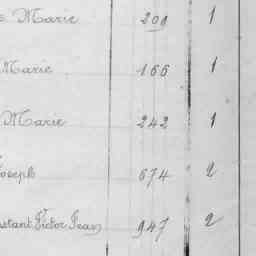 Marie 201 1
Marie 166 1
Marie 242 1
Joseph 674 2
stant Victor Jean 947 2